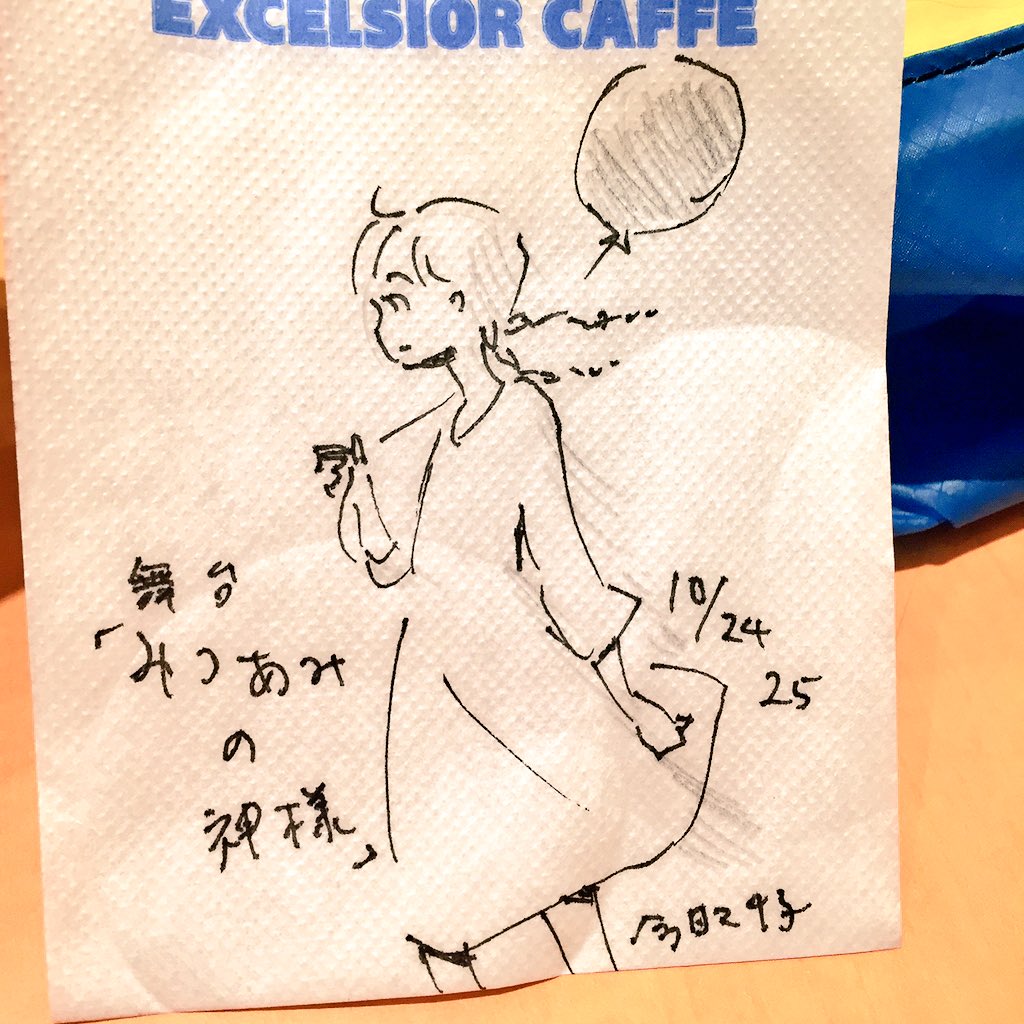 EXCELSIOR CAFFE
舞台
「みつあみ
の
神様」
10/24
25
今日マチ子